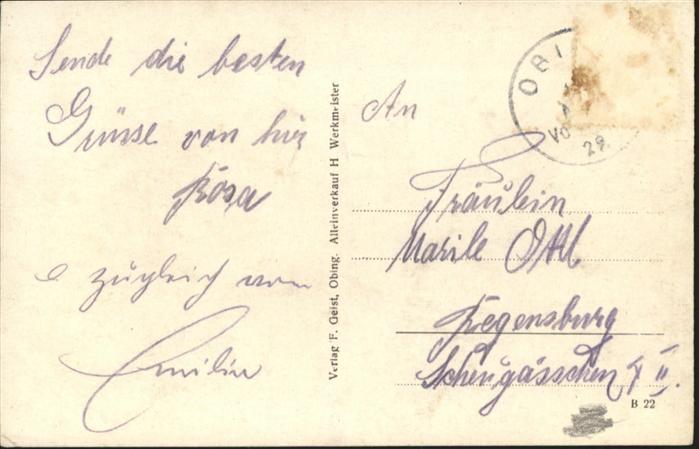 Sende die besten
Grüsse von hier
Rosa
zugleich von
Emilie
Verlag F. Geist, Obing. Alleinverkauf H Werkmeister
OBI
VO
29
An
Fräulein
Marile Ottl
Regensburg
II.
B 22